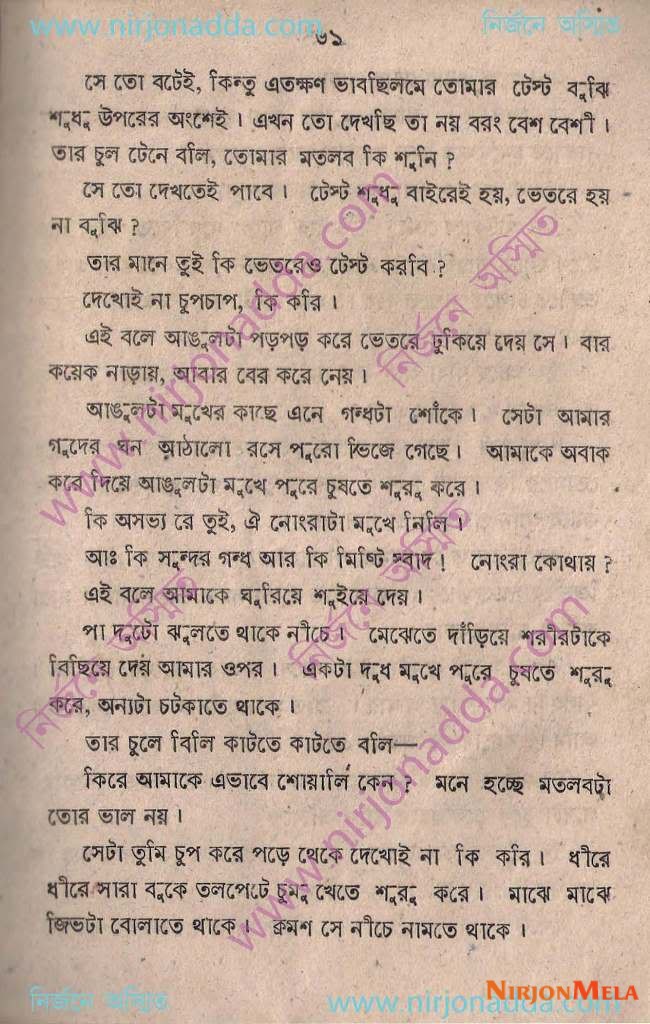 www.nirjonadda.com নির্জনে অস্মিত
৬১
সে তো বটেই, কিন্তু এতক্ষণ ভাবছিলমে তোমার টেস্ট বুঝি
শুধু উপরের অংশেই । এখন তো দেখছি তা নয় বরং বেশ বেশী ।
তার চুল টেনে বলি, তোমার মতলব কি শুনি ?
সে তো দেখতেই পাবে । টেস্ট শুধু বাইরেই হয়, ভেতরে হয়
না বুঝি ?
তার মানে তুই কি ভেতরেও টেস্ট করবি ?
দেখোই না চুপচাপ, কি করি ।
এই বলে আঙুলটা পড়পড় করে ভেতরে ঢুকিয়ে দেয় সে । বার
কয়েক নাড়ায়, আবার বের করে নেয় ।
আঙুলটা মুখের কাছে এনে গন্ধটা শোঁকে । সেটা আমার
গুদের ঘন আঠালো রসে পুরো ভিজে গেছে । আমাকে অবাক
করে দিয়ে আঙুলটা মুখে পুরে চুষতে শুরু করে ।
কি অসভ্য রে তুই, ঐ নোংরাটা মুখে নিলি ।
আঃ কি সুন্দর গন্ধ আর কি মিষ্টি স্বাদ ! নোংরা কোথায় ?
এই বলে আমাকে ঘুরিয়ে শুইয়ে দেয় ।
পা দুটো ঝুলতে থাকে নীচে । মেঝেতে দাঁড়িয়ে শরীরটাকে
বিছিয়ে দেয় আমার ওপর । একটা দুধ মুখে পুরে চুষতে শুরু
করে, অন্যটা চটকাতে থাকে ।
তার চুলে বিলি কাটতে কাটতে বলি—
কিরে আমাকে এভাবে শোয়ালি কেন ? মনে হচ্ছে মতলবটা
তোর ভাল নয় ।
সেটা তুমি চুপ করে পড়ে থেকে দেখোই না কি করি । ধীরে
ধীরে সারা বুকে তলপেটে চুমু খেতে শুরু করে । মাঝে মাঝে
জিভটা বোলাতে থাকে । ক্রমশ সে নীচে নামতে থাকে ।
www.nirjonadda.com
নির্জনে অস্মিত
নির্জনে অস্মিত
নির্জনে অস্মিত
www.nirjonadda.com
নির্জনে অস্মিত www.nirjonadda.com
NIRJONMELA